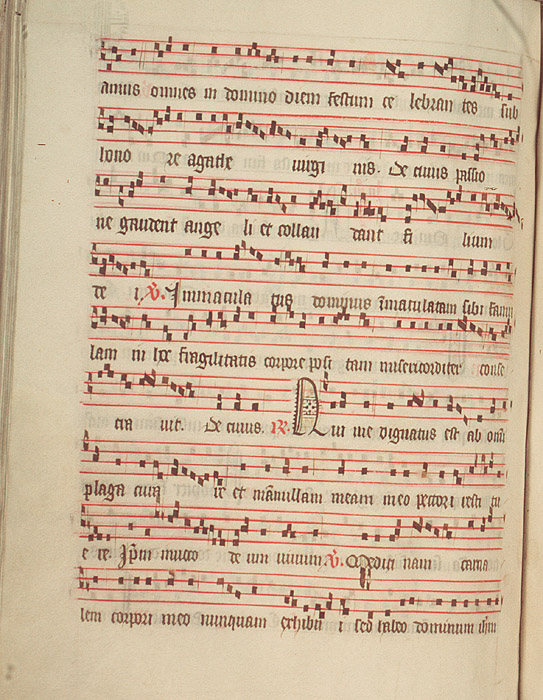 amus omnes in domino diem festum ce lebran tes sub
hono re agathe uirgi nis. De cuius passio
ne gaudent ange li et collau dant fi lium
de i. V. Immacula tus dominus ĩmaculatam sibi famu
lam in hoc fragilitatis corpore posi tam misericorditer conse
cra uit. De cuius. R. Qui me dignatus est ab omĩ
plaga cura re et mãmillam meam meo pectori resti tu
e re. Ip̃m inuoco de um uiuum. V. Medici nam carna
lem corpori meo nunquam exhibu i sed habeo dominum ihm̃